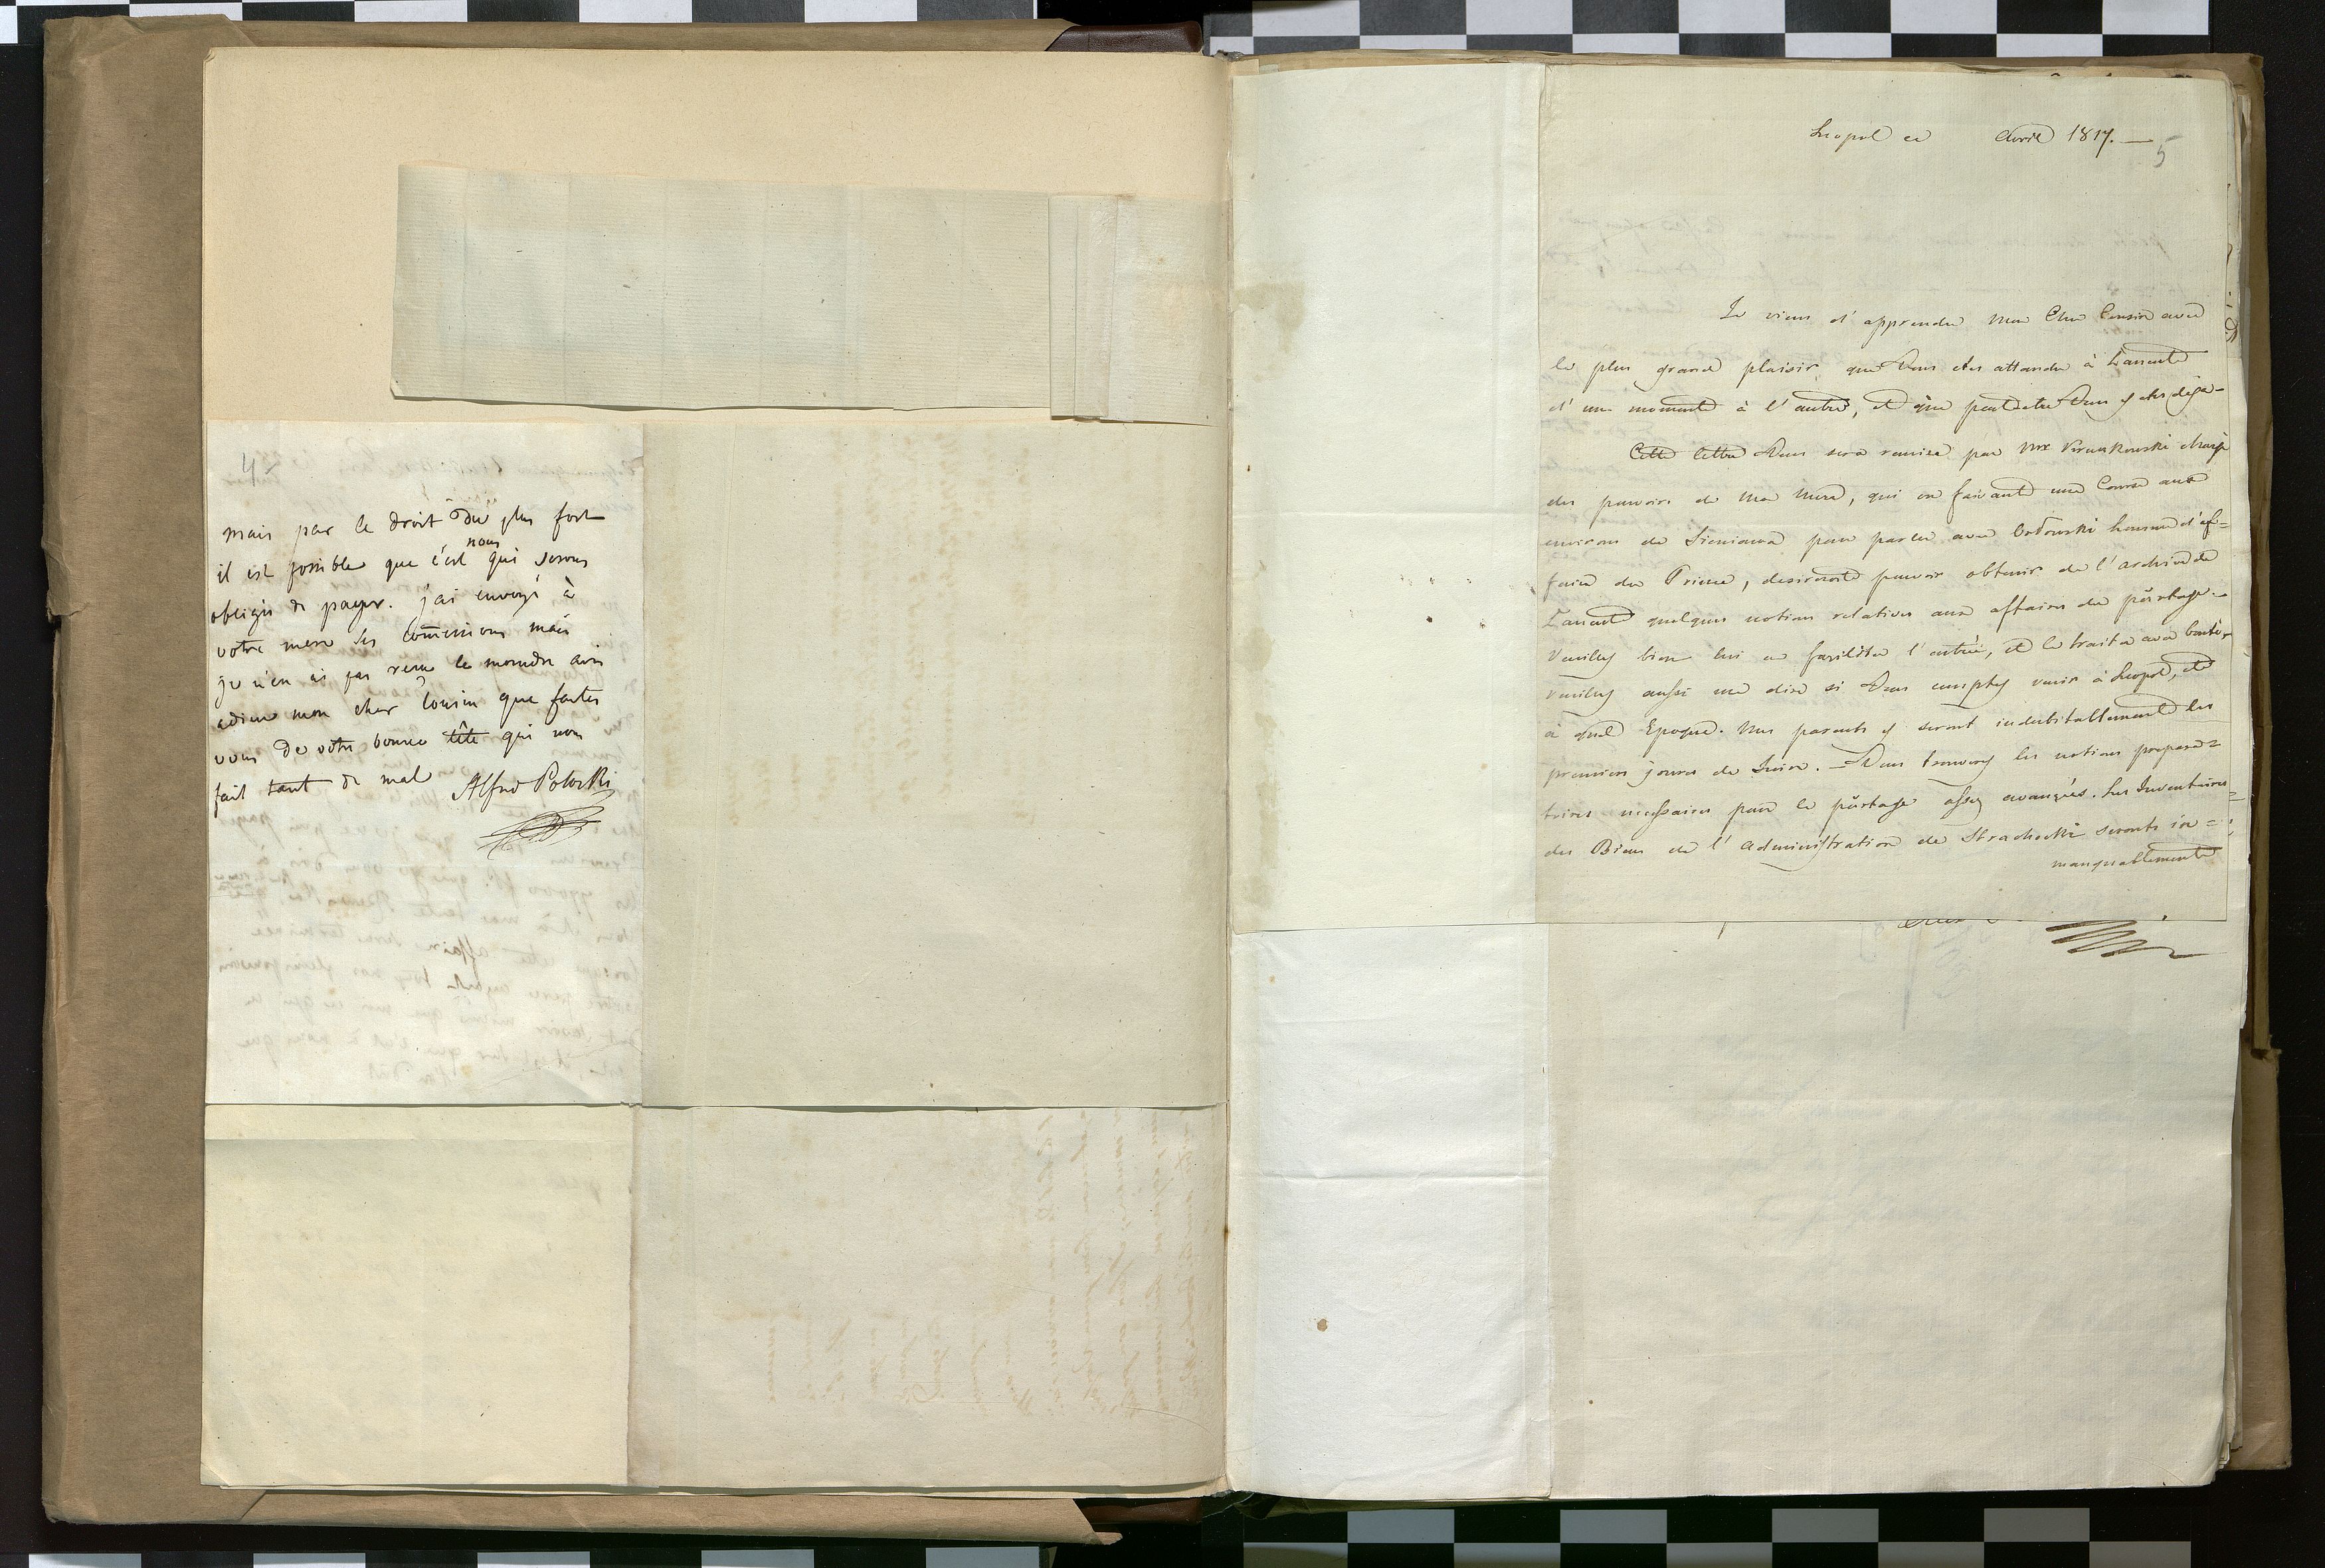 4
mais par le droit du plus fort
il est possible que c'est nous qui serons
obligés de payer. j'ai envoyé à
votre mere ses comissions mais
je n'en ai pas reçu le moindre avis
adieu mon cher Cousin que faites
vous de votre bonne tête qui nous
fait tant de mal Alfred Potocki
Leopol ce Avril 1817.
5
Je viens d'apprendre mon Cher Cousin avec
le plus grand plaisir, que Vous etes attendu à Lancut
d'un moment à l'autre, et que peutetre Vous y etes deja-
Cette lettre Vous sera remise par Mr chargé
des pouvoirs de ma Mere, qui en faisant une Course aux
environs de Sieniawa pour parler avec homme d'af=
faire du Prince, desireroit pouvoir obtenir de l'archive de
Lancut quelques notions relatives aux affaires du partage.
Veuillez bien lui en faciliter l'entrée, et le traiter avec bonté,
veuillez aussi me dire si Vous comptez venir à Leopol, et
à quel Epoque. Mes parents y seront indubitablement les
premiers jours de Juin. Vous trouverez les notions prepara=
toires necessaires pour le partage assez avancées. Les Inventaires
des Biens de l'administration de Strachocki seronts in=
manquablement